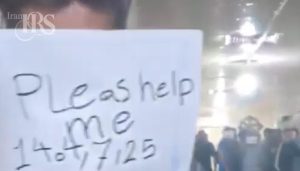 Iran
HRS
PLeas help
me
1404,7,25